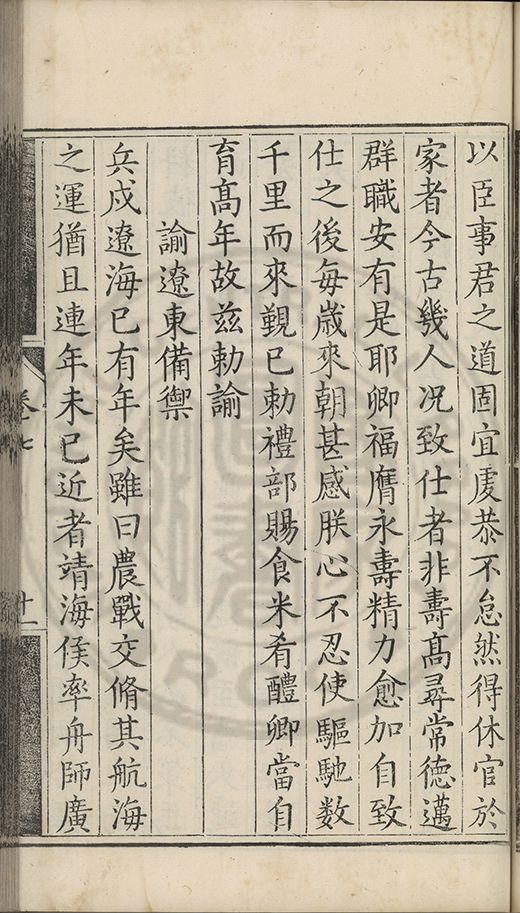 以臣事君之道固宜虔恭不怠然得休官於
家者今古幾人况致仕者非壽髙尋常德邁
群職安有是耶卿福膺永壽精力愈加自致
仕之後每歳來朝甚感朕心不忍使驅馳数
千里而來覲已勅禮部賜食米肴醴卿當自
育髙年故兹勅諭
諭遼東備禦
兵戍遼海已有年矣雖曰農戰交脩其航海
之運猶且連年未已近者靖海侯率舟師廣
卷十七
十一